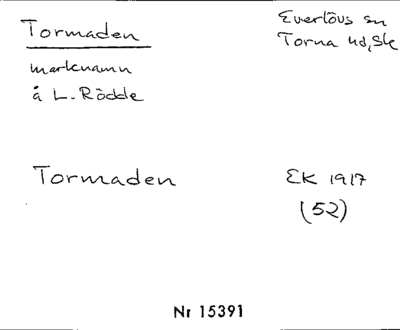 Tormaden
Everlövs sn
Torna hd, Sk
marknamn
å L. Rödde
Tormaden
EK 1917
(52)
Nr 15391